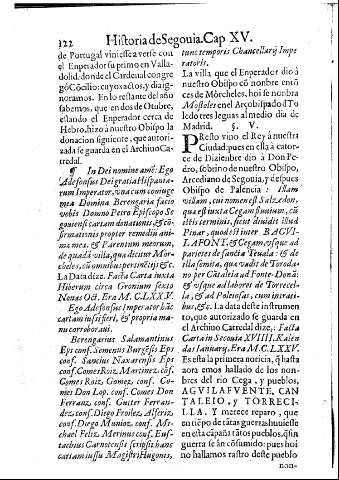 122 Historia de Segouia. Cap XV.
de Portugal viniesse a verse con
el Enperador su primo en Valla-
dolid, donde el Cardenal congre
gó Cōcilio: cuyos actos, y dia ig-
noramos. En lo restante del año
sabemos, que en dos de Otubre,
estando el Enperador cerca de
Hebro, hizo à nuestro Obispo la
donacion siguiente, que autori-
zada se guarda en el Archiuo Ca-
tredal.
¶ In Dei nomine amé: Ego
Adefonsus Dei gratia Hispania-
rum Imperator, vna cum coniuge
mea Domina Berengaria facio
vobis Domno Petro Episcopo Se-
gouiensi cartam donationis, & cō-
firmationis propter remedij ani-
mæ meæ, & Parentum meorum,
de quadā villa, quæ dicitur Mór-
cheles, cū omnibus pertinētijs &c.
La Data dize. Facta Carta iuxta
Hiberum circa Gronium sexto
Nonas Oct. Era M.C.LXXV.
Ego Adefonsus Imperator hāc
cartam iussi fieri, & propria ma-
nu corroboraui.
Berengarius Salamantinus
Eps conf. Semenus Burgēsis Eps
conf. Sancius Naxarensis Eps
conf. Comes Roiz, Martinez, cōf.
Comes Roiz, Gomez, conf. Co-
mes Don Lop. conf. Comes Don
Ferranz, conf. Gutter Ferran-
dez, conf. Diego Froilez, Alferiz,
conf. Diego Munioz, conf. Mi-
chael Feliz, Merinus conf. Eu-
stachius Carnotensis scripsit hanc
cartam iussu Magistri Hugonis,
tunc temporis Chancellarij Impe
ratoris.
La villa que el Enperador dió à
nuestro Obispo cō nonbre entō
ces de Mórcheles, hoi se nonbra
Mosoles en el Arçobispado d̃ To
ledo tres leguas al medio dia de
Madrid. §. V.
PResto vino el Rey à nuestra
Ciudad: pues en ella à cator-
ce de Diziembre dió à Don Pe-
dro, sobrino de nuestro Obispo,
Arcediano de Segouia, y despues
Obispo de Palencia: illam
villam, cui nomen est Salzedon,
quæ est iuxta Cegam fluuium, cū
istis terminis, sicut diuidit illud
Pinar, quod est inter BAGVI-
LAFONT, & Cegam, vsque ad
parietes de sancta Yeuala: & de
illa semita, que vadit de Torodá-
no per Cātaleia ad Fonte-Donā:
& vsque ad labores de Torrecel-
la, & ad Poleiños, cum intrati-
bus, &c. La data deste instrumen-
to, que autorizado se guarda en
el Archiuo Catredal dize,: Facta
Carta in Secouia XVIIII. Kalen
das Ianuarij. Era M.C.LXXV.
Es esta la primera noticia, q̃ hasta
aora emos hallado de los non-
bres del rio Cega, y pueblos,
AGVILAFVENTE, CAN
TALEIO, y TORRECI-
LLA. Y merece reparo, que
en tiēpo de tātas guerras huuiesse
en esta cāpaña tātos pueblos, q̃ sin
guerra se ān cōsumido: pues hoi
no hallamos rastro deste pueblo
non-